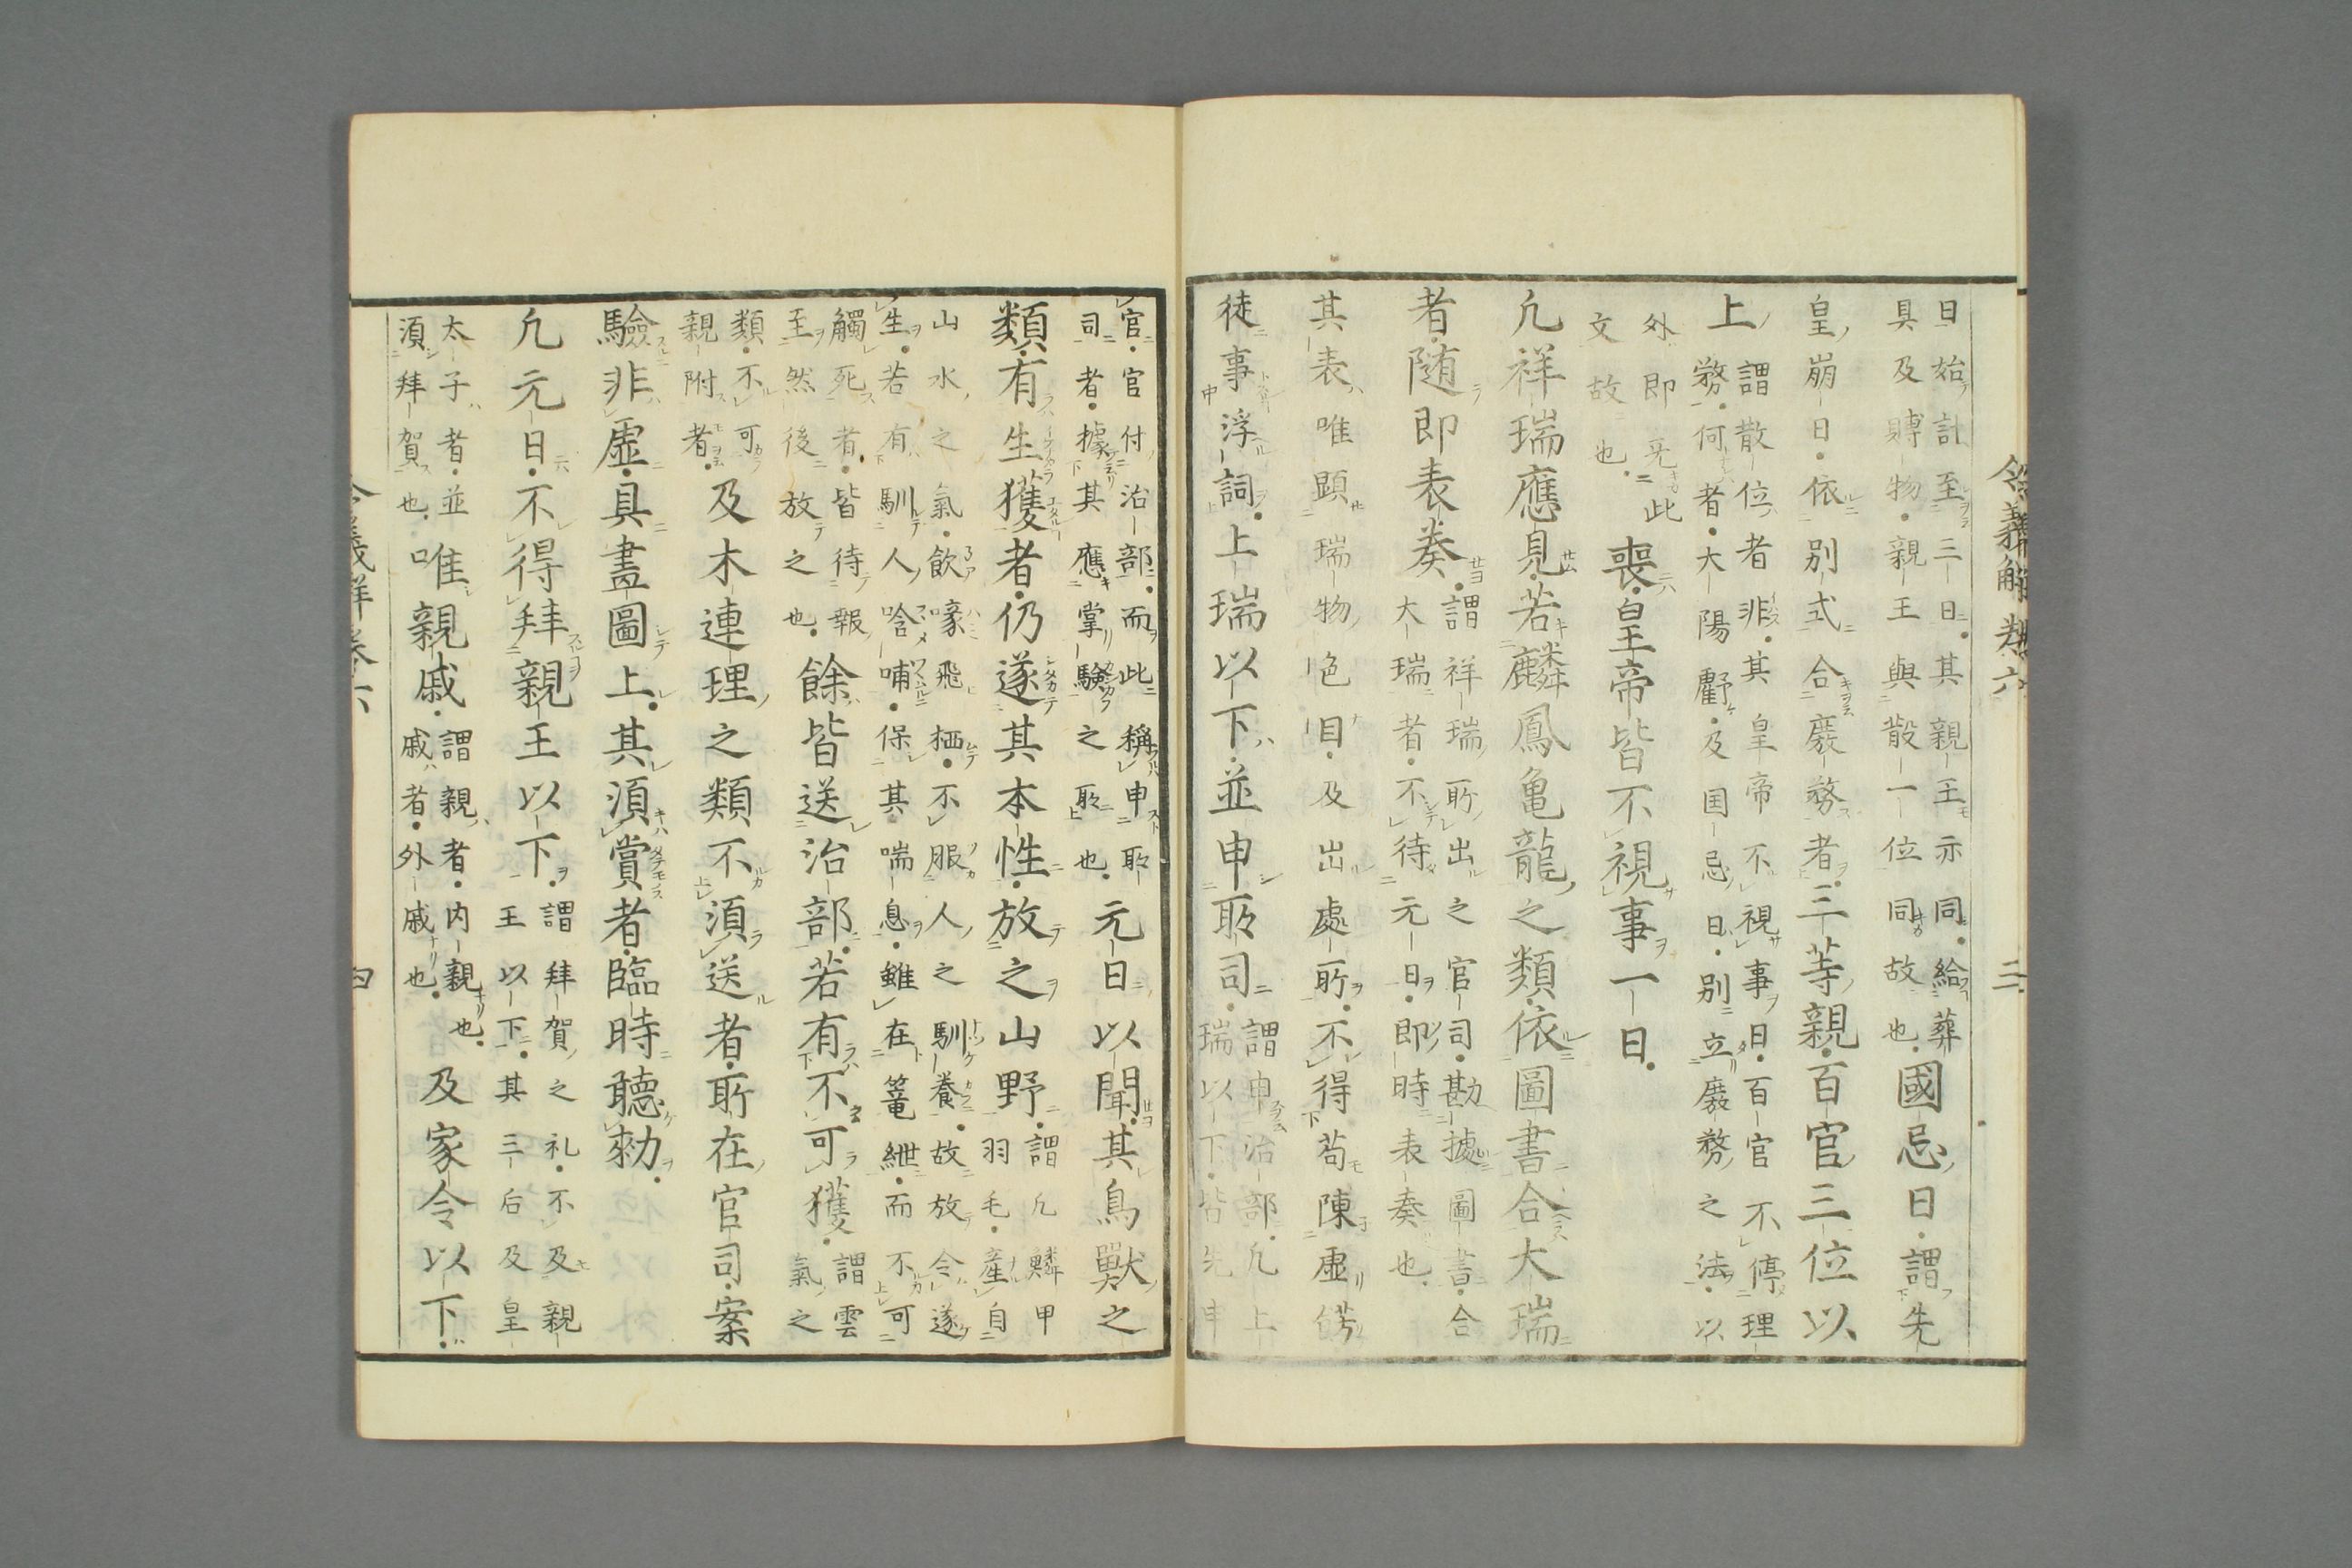 日始計至三日其親王亦同給葬
具及賻物親王與散一位同故也
國忌日謂先
皇崩日依別式合廢務者三等親百官三位以
上謂散位者非其皇帝不視事日百官不停理
務何者大陽虧及国忌日別立廢務之法以
外即
此
文故也
喪皇帝皆不視事一日
凢祥瑞應見若麟鳳亀龍之類依圖書合大瑞
者随即表奏謂祥瑞所出之官司勘據圖書合
大瑞者不待元日即時表奏也
其表唯顕瑞物色目及出處所不得苟陳虚餝
徒事浮詞上瑞以下並申所司謂申治部凢上
瑞以下皆先申
令義解巻六 三
官官付治部而此稱申所
司者據其應掌驗之所也
元日以聞其鳥獸之
類有生獲者仍遂其本性放之山野謂凢鱗甲
羽毛産自
山水之氣飲喙飛栖不服人之馴養故放令遂
生若有馴人唅哺保其喘息雖在篭紲而不可
觸死者皆待報
至然後放之也
餘皆送治部若有不可獲謂雲
氣之
類不可
親附者
及木連理之類不須送者所在官司案
驗非虚具畫圖上其須賞者臨時聴勅
凢元日不得拜親王以下謂拜賀之礼不及親
王以下其三后及皇
太子者並
須拜賀也
唯親戚謂親者内親也
戚者外戚也
及家令以下
令義解巻六 四